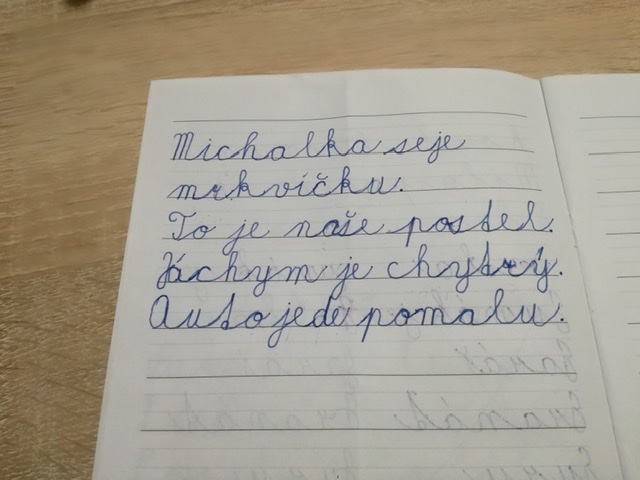 Michalka seje
mrkvičku.
To je naše postel.
Jáchym je chytrý.
Auto jede pomalu.